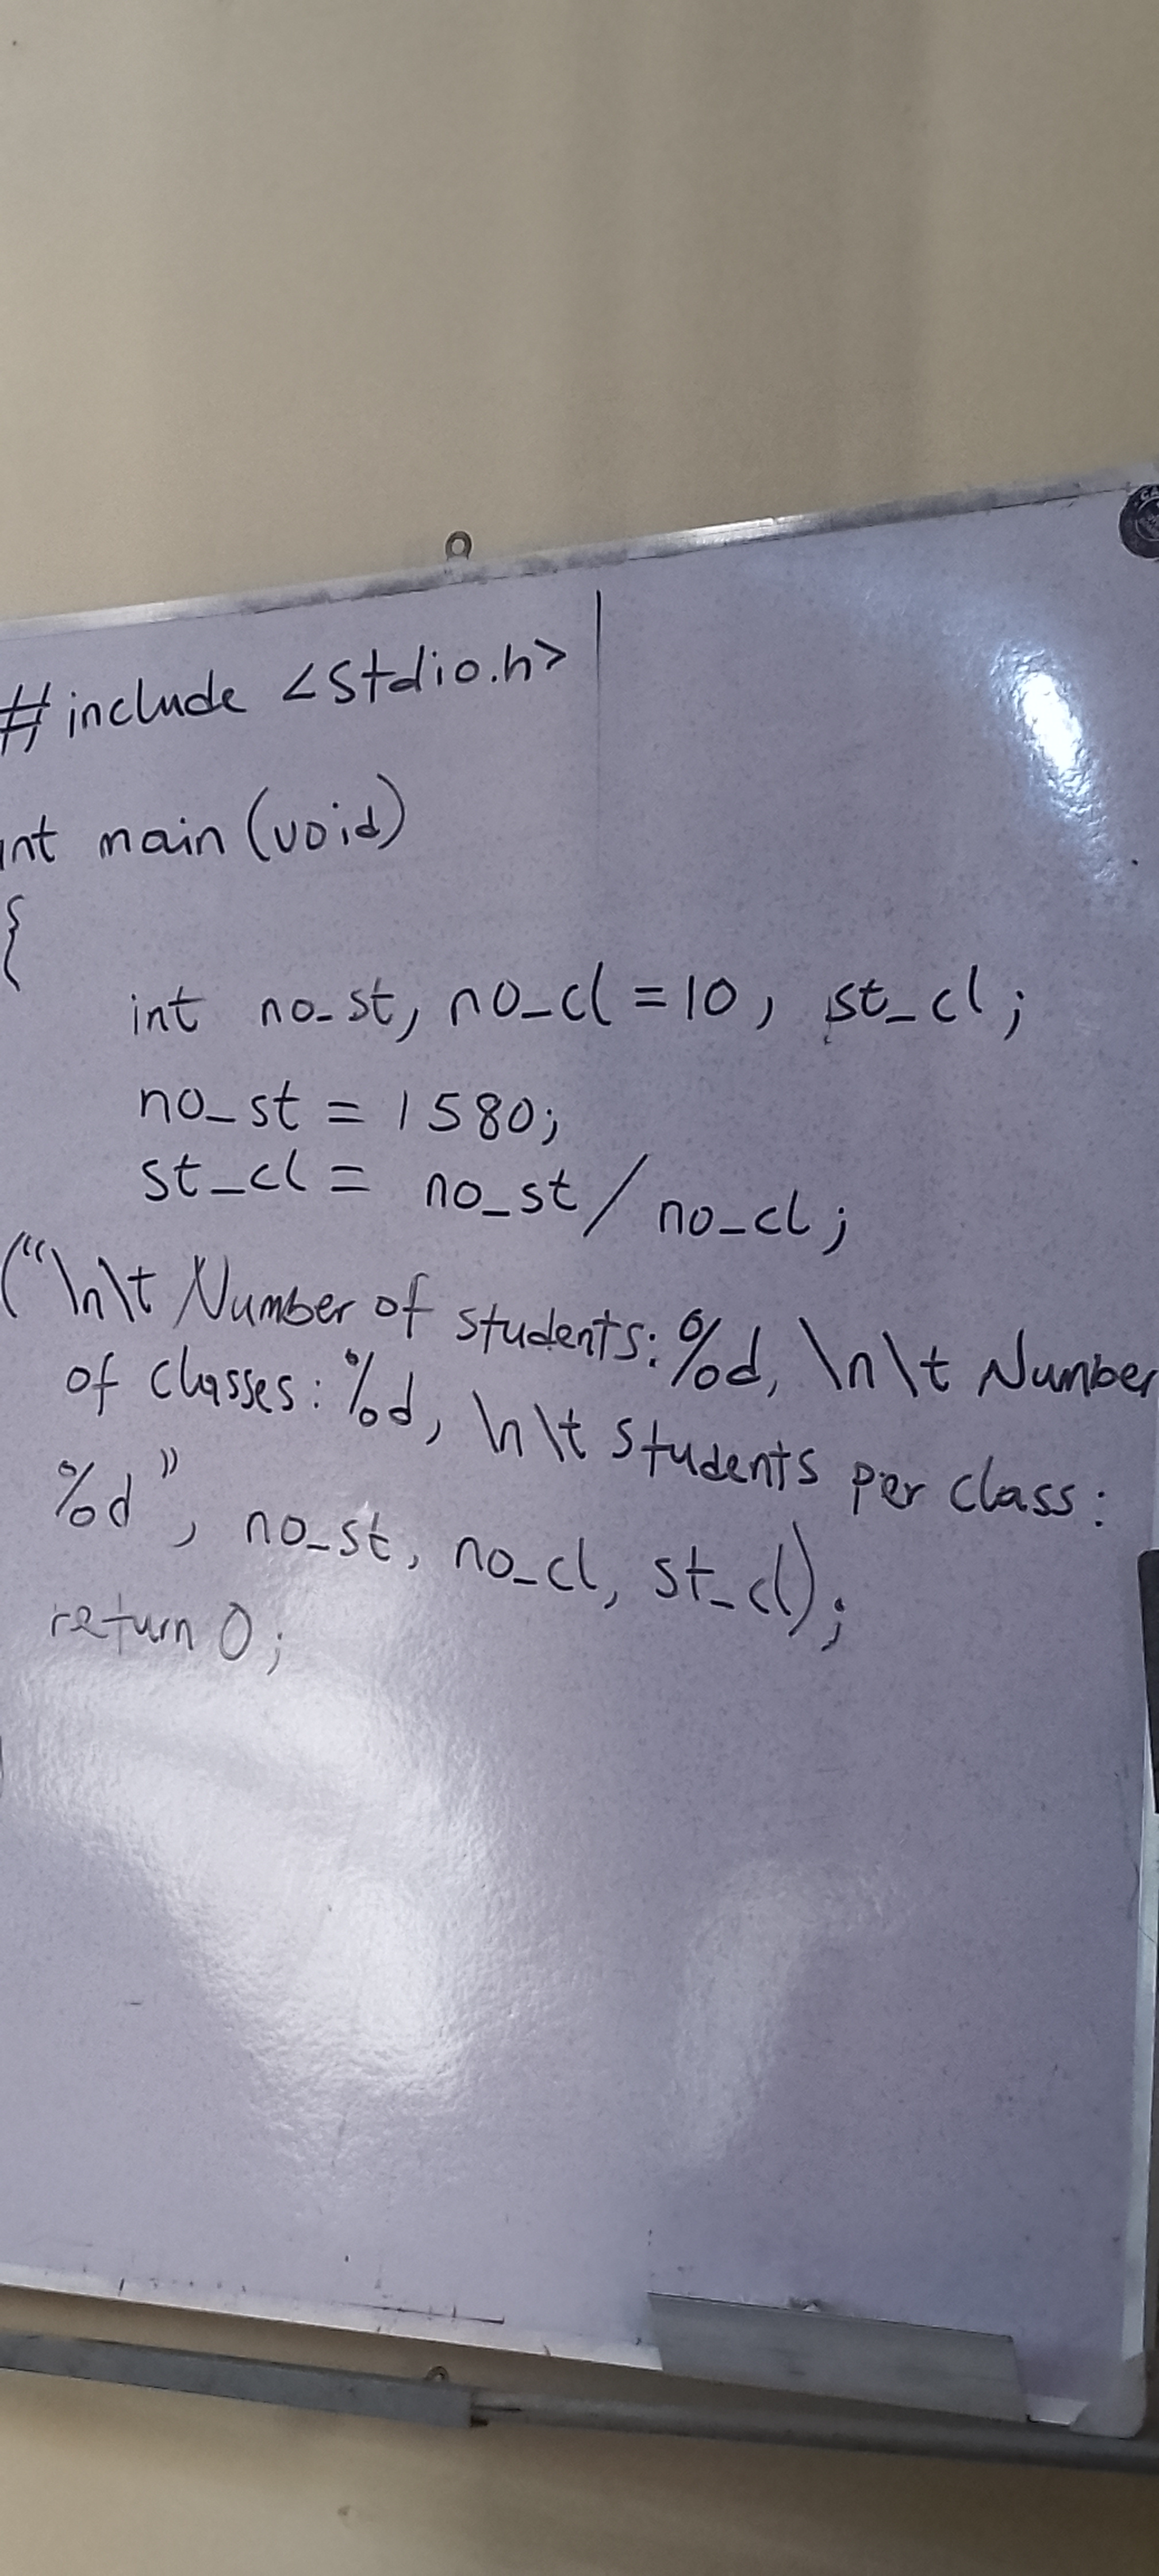 #include <stdio.h>
int main (void)
{
int no_st, no_cl = 10, st_cl;
no_st = 1580;
st_cl = no_st / no_cl;
("\n\t Number of students: %d, \n\t Number
of classes: %d, \n\t students per class:
%d", no_st, no_cl, st_cl);
return 0;